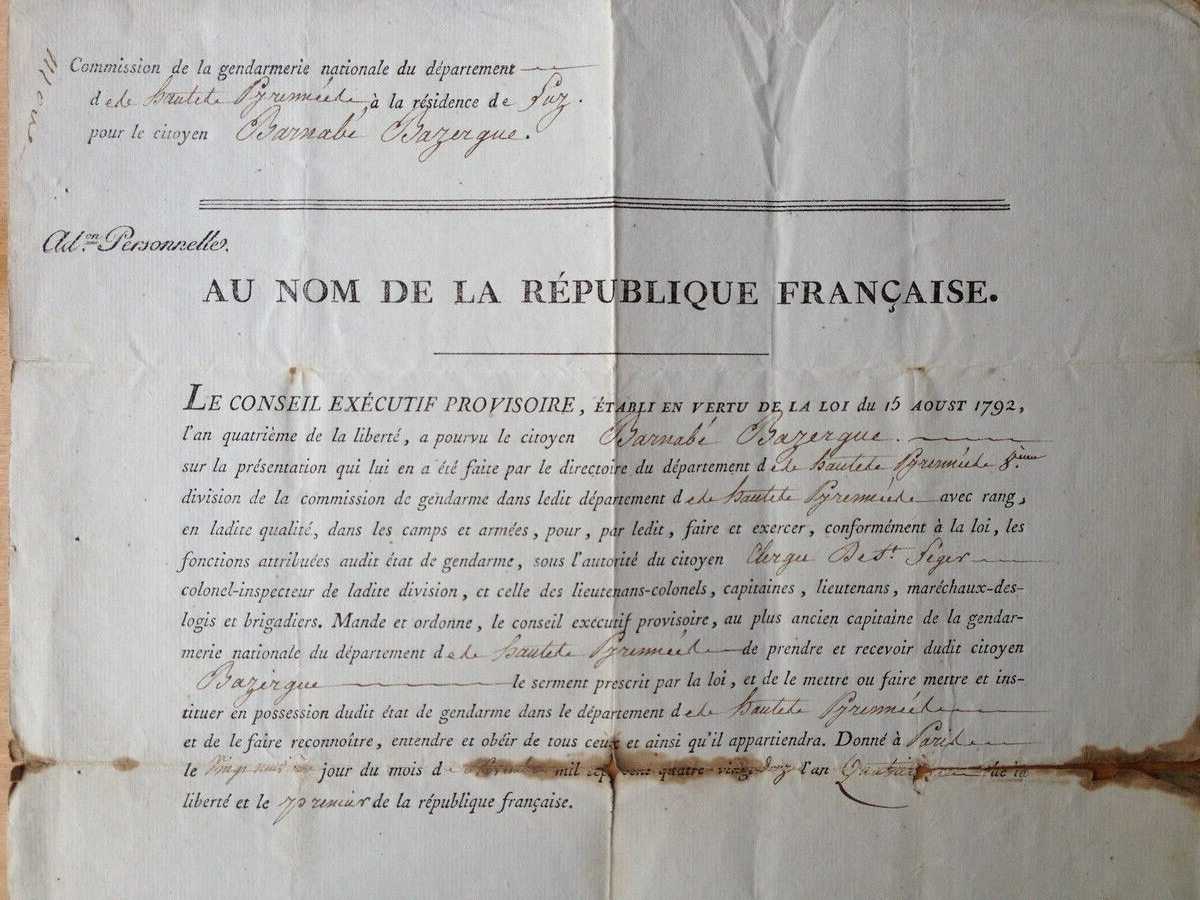 Commission de la gendarmerie nationale du département
d es hautes Pyrennées, à la résidence de Luz.
pour le citoyen Barnabé Bazergue.
Ad.on Personnelle.
AU NOM DE LA RÉPUBLIQUE FRANÇAISE.
LE CONSEIL EXÉCUTIF PROVISOIRE, ÉTABLI EN VERTU DE LA LOI du 15 AOUST 1792,
l'an quatrième de la liberté, a pourvu le citoyen Barnabé Bazergue.
sur la présentation qui lui en a été faite par le directoire du département d es hautes Pyrennées 8.ième
division de la commission de gendarme dans ledit département d es hautes Pyrennées avec rang,
en ladite qualité, dans les camps et armées, pour, par ledit, faire et exercer, conformément à la loi, les
fonctions attribuées audit état de gendarme, sous l'autorité du citoyen De St.
colonel-inspecteur de ladite division, et celle des lieutenans-colonels, capitaines, lieutenans, maréchaux-des-
logis et brigadiers. Mande et ordonne, le conseil exécutif provisoire, au plus ancien capitaine de la gendar-
merie nationale du département d es hautes Pyrennées de prendre et recevoir dudit citoyen
Bazergue le serment prescrit par la loi, et de le mettre ou faire mettre et ins-
tituer en possession dudit état de gendarme dans le département d es hautes Pyrennées
et de le faire reconnoître, entendre et obéir de tous ceux et ainsi qu'il appartiendra. Donné à Paris
le jour du mois d mil sept cent quatre-vingt douz l'an Quatrième de la
liberté et le premier de la république française.